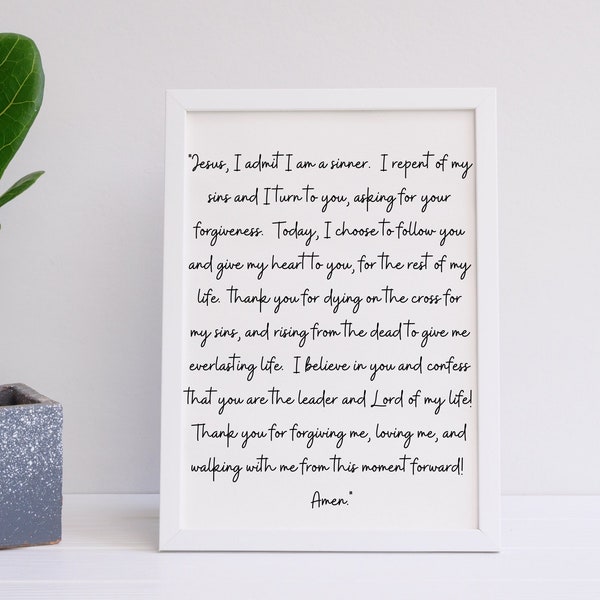 "Jesus, I admit I am a sinner. I repent of my
sins and I turn to you, asking for your
forgiveness. Today, I choose to follow you
and give my heart to you, for the rest of my
life. Thank you for dying on the cross for
my sins, and rising from the dead to give me
everlasting life. I believe in you and confess
that you are the leader and Lord of my life!
Thank you for forgiving me, loving me, and
walking with me from this moment forward!
Amen."